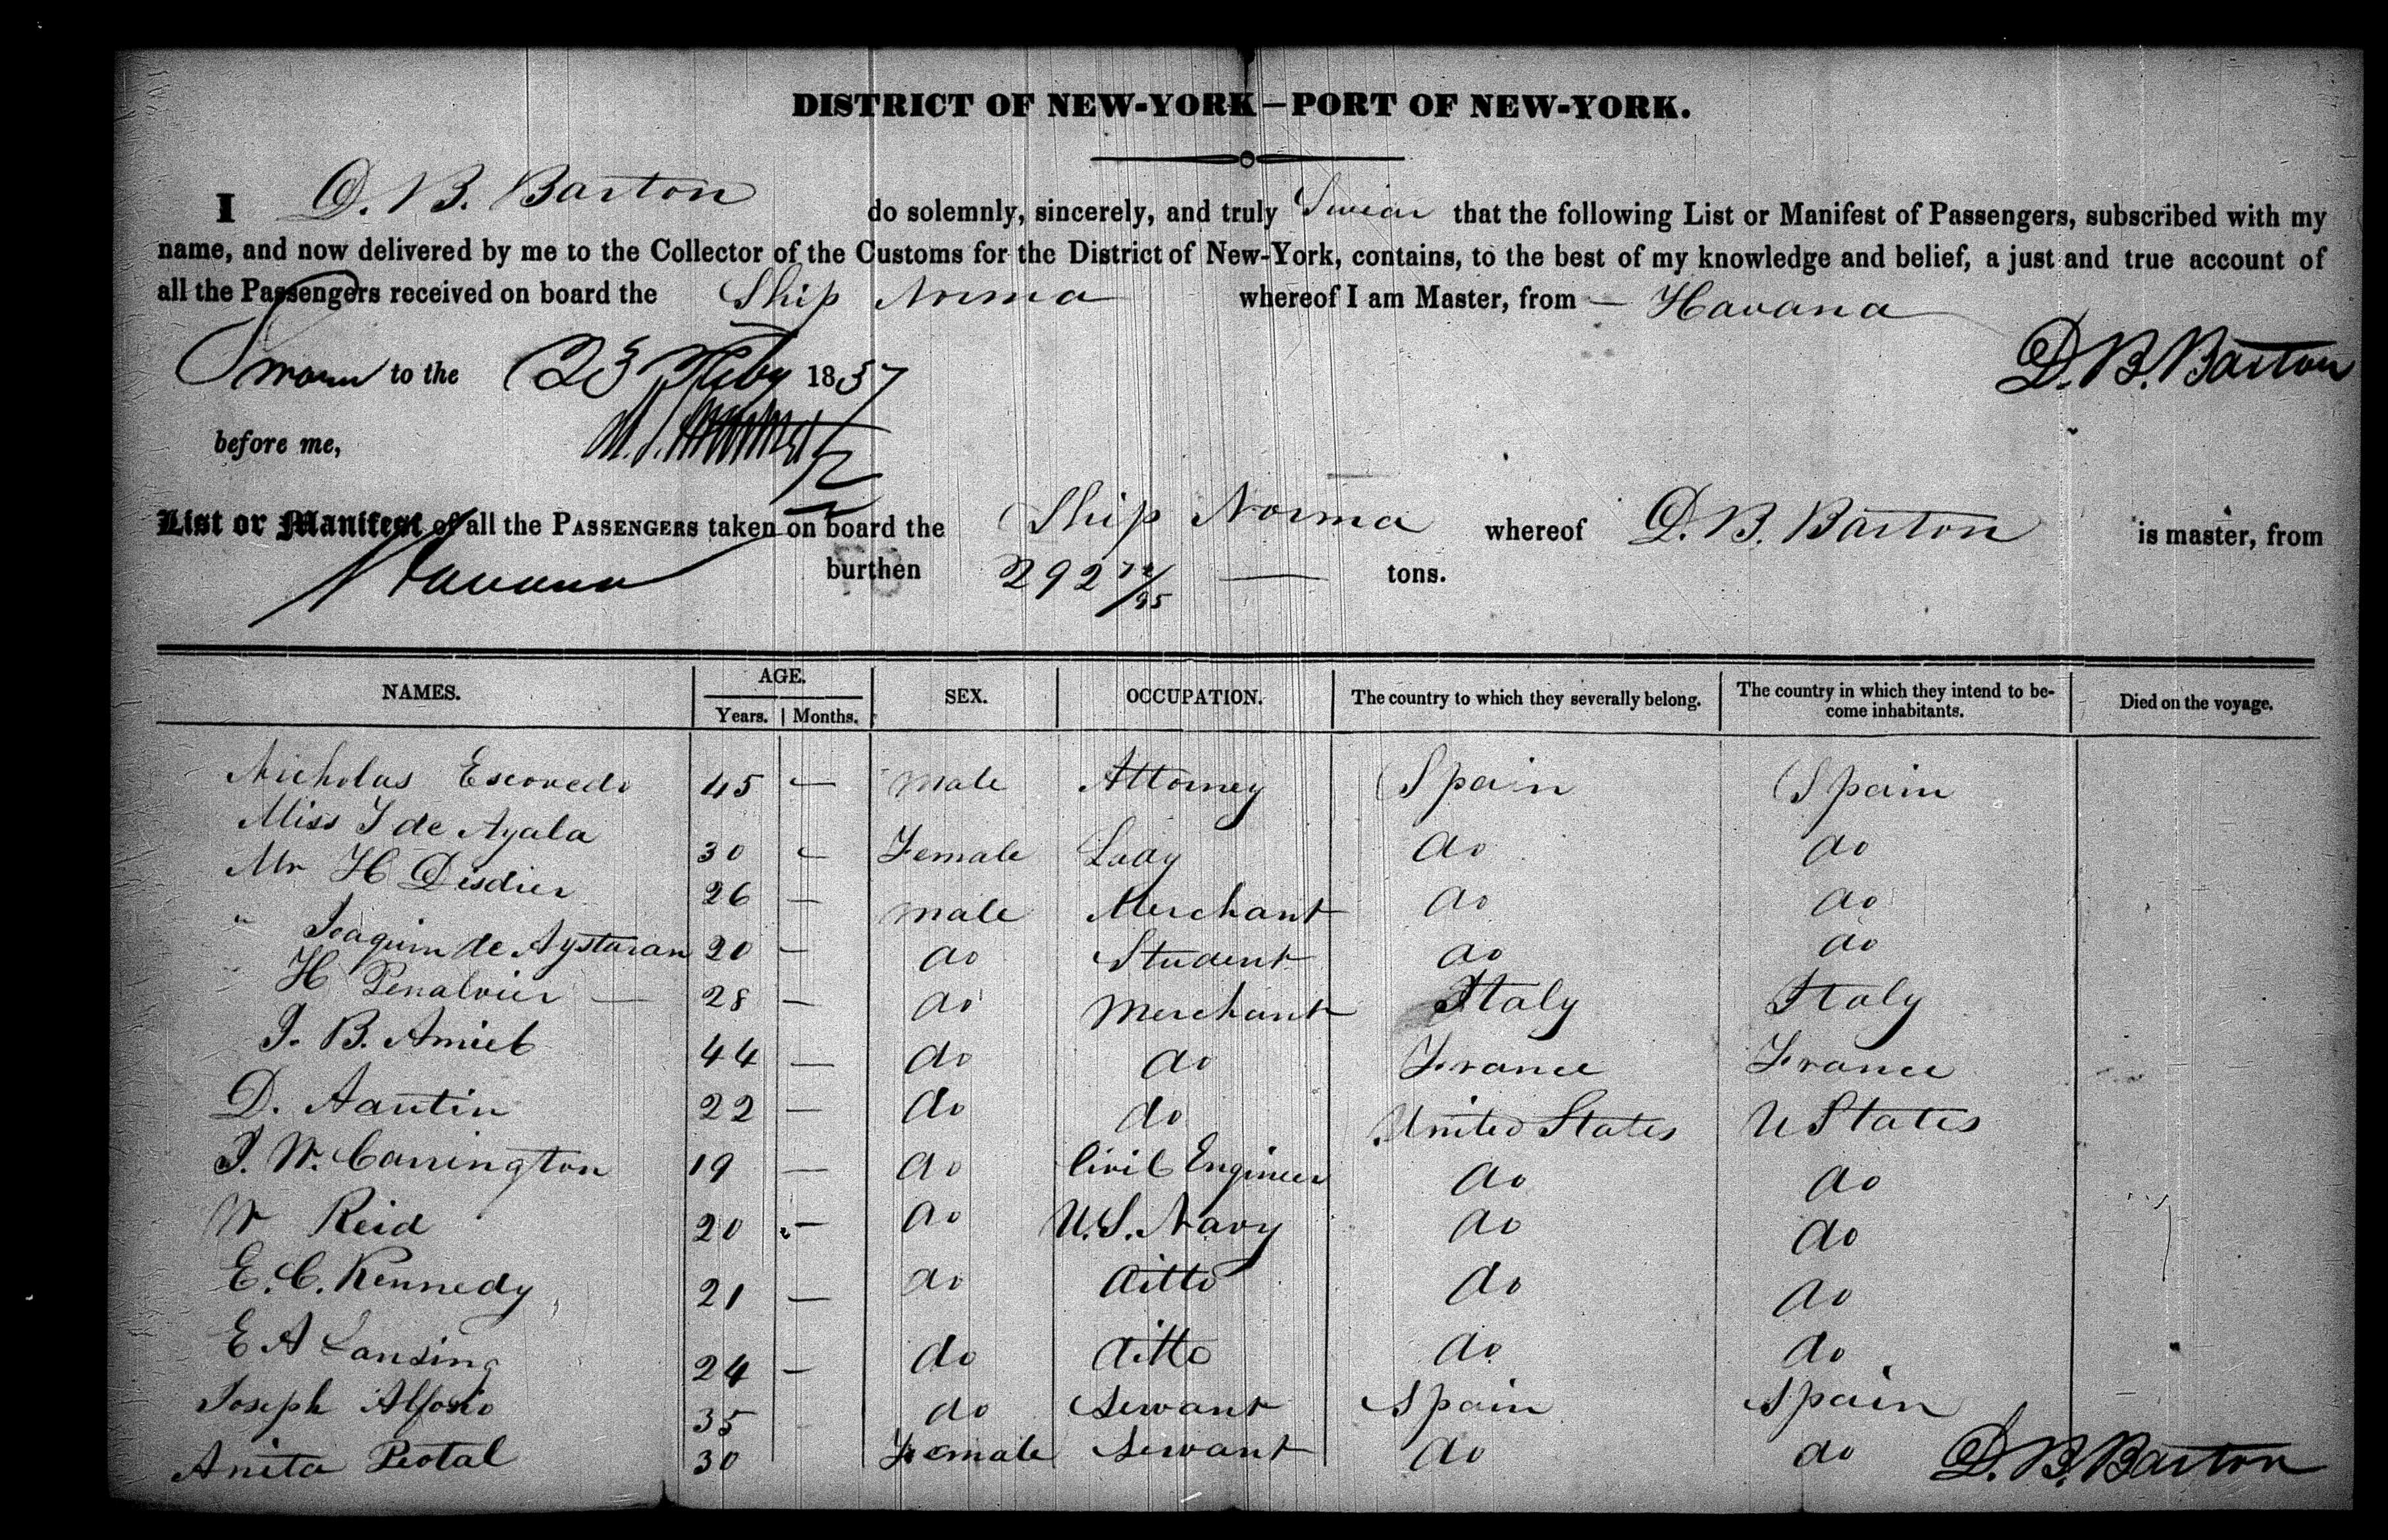 DISTRICT OF NEW-YORK—PORT OF NEW-YORK.
I D. B. Barton do solemnly, sincerely, and truly Swear that the following List or Manifest of Passengers, subscribed with my
name, and now delivered by me to the Collector of the Customs for the District of New-York, contains, to the best of my knowledge and belief, a just and true account of
all the Passengers received on board the Ship Norma whereof I am Master, from — Havana
Sworn to the 23 Feby 1837 D. B. Barton
before me,
List or Manifest of all the PASSENGERS taken on board the Ship Norma whereof D. B. Barton is master, from
Havana burthen 292 72/95 — tons.
NAMES. AGE. Years. Months. SEX. OCCUPATION. The country to which they severally belong. The country in which they intend to become inhabitants. Died on the voyage.
Nicholas Escovedo 45 — male Attorney Spain Spain
Miss I de Ayala 30 — Female Lady do do
Mr H Desdier 26 — male Merchant do do
" Joaquin de Aystaran 20 — do Student do do
" H Penalvier — 28 — do Merchant Italy Italy
J. B. Amiel 44 — do do France France
D. Aantin 22 — do do United States U States
J. W. Carrington 19 — do Civil Engineer do do
W Reid 20 — do U.S. Navy do do
E. C. Kennedy 21 — do ditto do do
E A Lansing 24 — do ditto do do
Joseph Alfonso 35 do Servant Spain Spain
Anita Peotal 30 Female Servant do do D. B. Barton